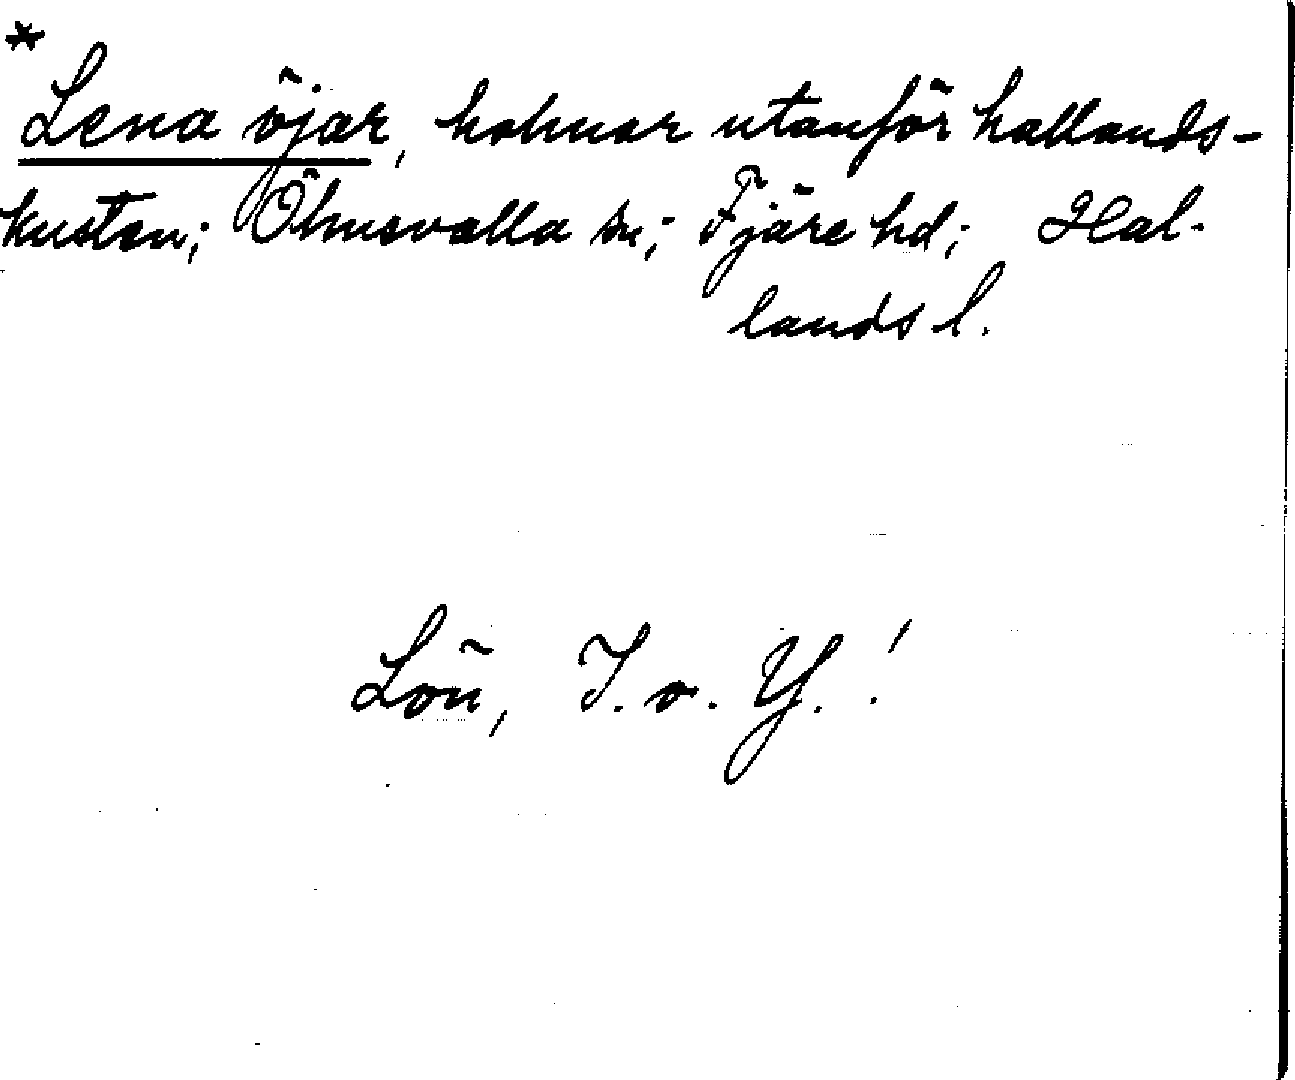 *
Lena öjar, holmar utanför hallands-
kusten; Ölmevalla sn; Fjäre hd; Hal-
lands l.
Lön, I. o. Y.!